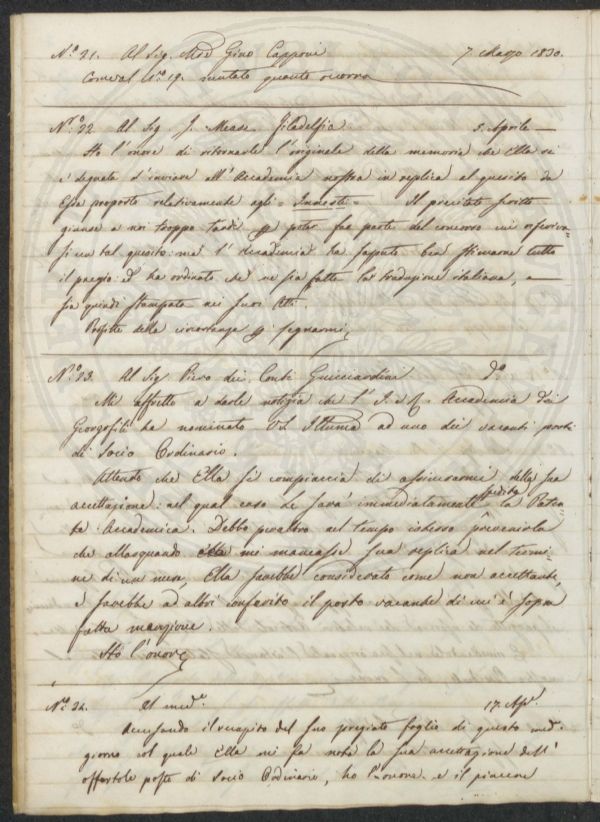 N.° 21. Al Sig. Mse Gino Capponi 7 Marzo 1830.
Come al N.° 19. mutato quanto occorre
N.° 22 Al Sig J. Mease Filadelfia 5. Aprile
Ho l'onore di ritornarle l'originale della memoria che Ella si
è degnata d'inviare all'Accademia nostra in replica al quesito da
Essa proposto relativamente agli = Innesti = Il precitato scritto
giunse a noi troppo tardi per poter far parte del concorso cui riferiva-
si un tal quesito: ma l'Accademia ha saputo ben stimarne tutto
il pregio: ed ha ordinato che ne sia fatta la traduzione italiana, e
sia quindi stampata nei suoi Atti.
Profitto della circostanza per segnarmi
N.° 23. Al Sig Piero dei Conti Guicciardini D.°
Mi affretto a darle notizia che l'I. e R. Accademia dei
Georgofili ha nominato VS Illma ad uno dei vacanti posti
di Socio Ordinario.
Attendo che Ella si compiaccia di assicurarmi della sua
accettazione: nel qual caso Le sarà immediatamente spedita la Paten-
te Accademica. Debbo peraltro nel tempo istesso prevenirla
che allorquando mi mancasse sua replica nel termi-
ne di un mese, Ella sarebbe considerato come non accettante,
e sarebbe ad altri conferito il posto vacante di cui è sopra
fatta menzione.
Ho l'onore
N.° 24. Al med.° 17. Apl.
Accusando il recapito del suo pregiato foglio di questo med.
giorno col quale Ella mi fa nota la sua accettazione dell'
offertole posto di Socio Ordinario, ho l'onore e il piacere